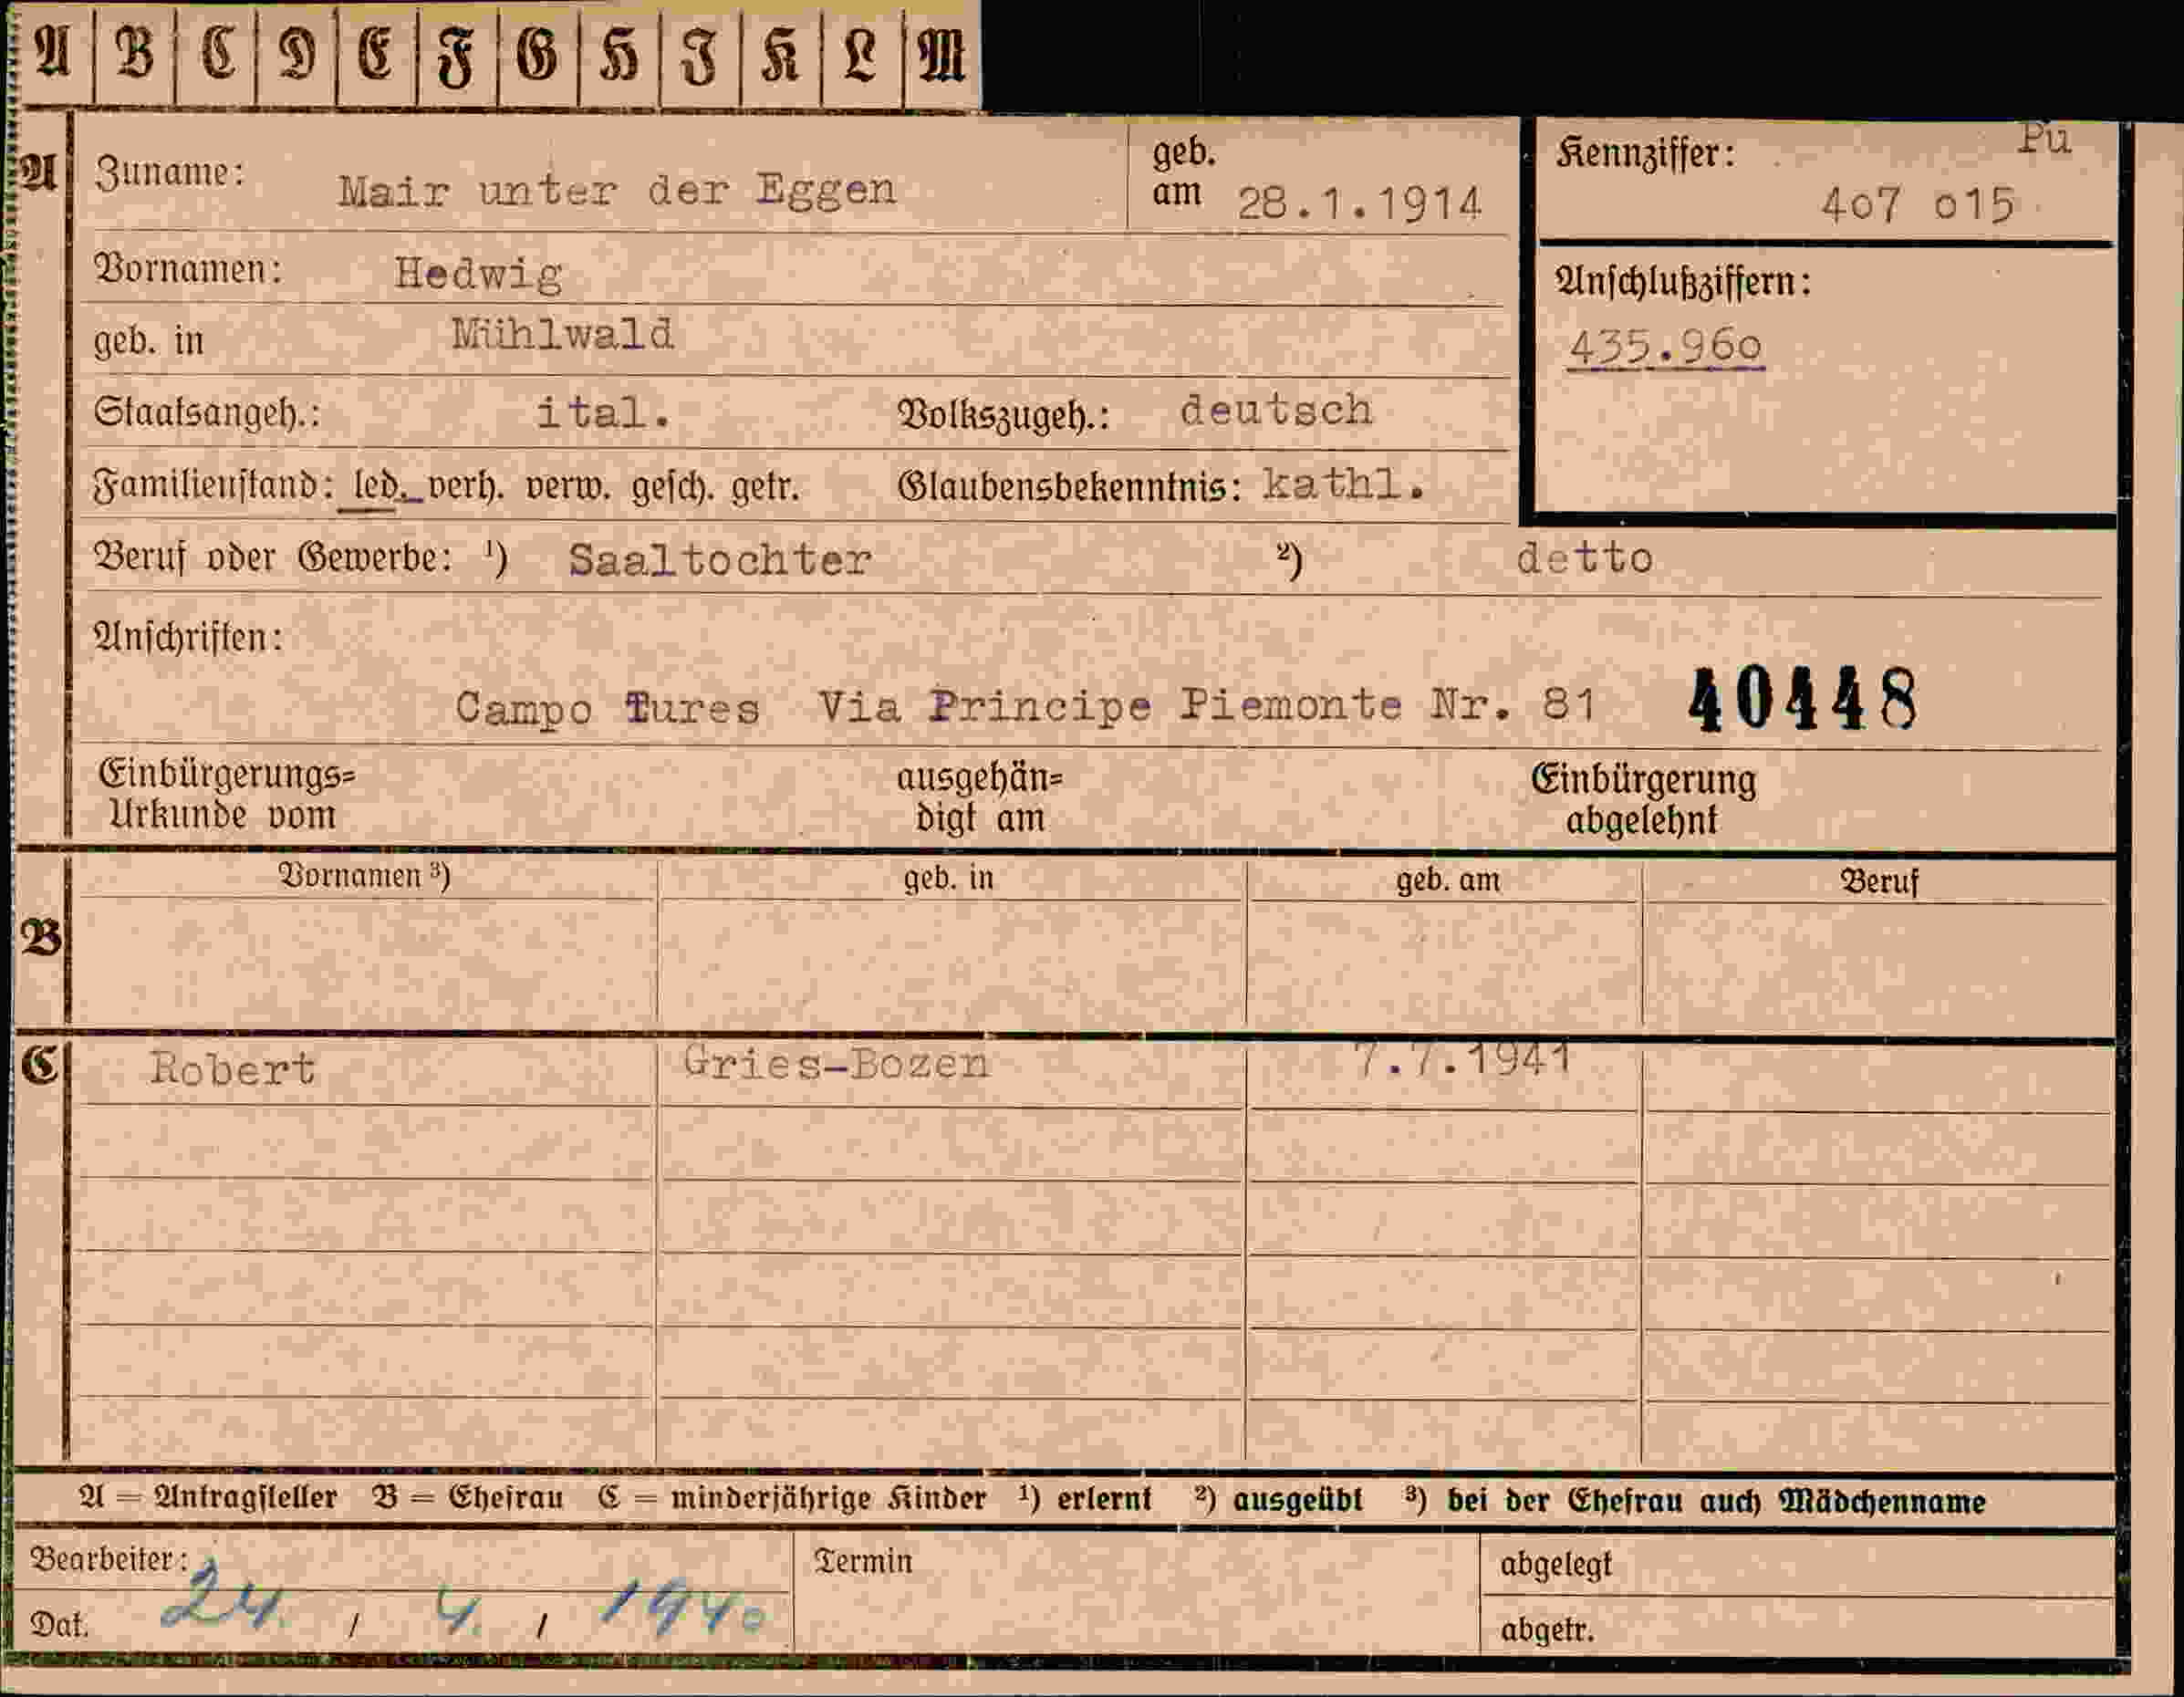 A B C D E F G H I K L M
A Zuname: Mair unter der Eggen geb. am 28.1.1914 Kennziffer: Pu 407 015
Vornamen: Hedwig Anschlußziffern:
geb. in Mühlwald 435.960
Staatsangeh.: ital. Volkszugeh.: deutsch
Familienstand: led. verh. verw. gesch. getr. Glaubensbekenntnis: kathl.
Beruf oder Gewerbe: ¹) Saaltochter ²) detto
Anschriften:
Campo Tures Via Principe Piemonte Nr. 81 40448
Einbürgerungs= ausgehän= Einbürgerung
Urkunde vom digt am abgelehnt
Vornamen ³) geb. in geb. am Beruf
B
C Robert Gries-Bozen 7.7.1941
A = Antragsteller B = Ehefrau C = minderjährige Kinder ¹) erlernt ²) ausgeübt ³) bei der Ehefrau auch Mädchenname
Bearbeiter: Termin abgelegt
Dat. 24. / 4. / 1940 abgetr.